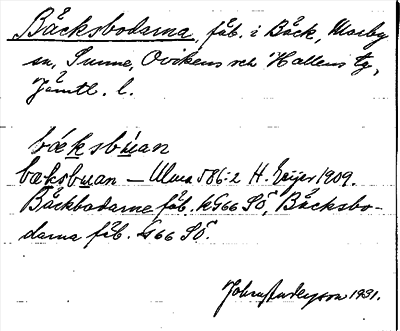 Bäcksbodarna fäb. i Bäck, Marby
sn, Sunne, Ovikens och Hallens tg,
Jämtl. l.
bǽksbúan
bæksbuan – Ulma 586:2 H. Geijer 1909.
Bäckbodarne fäb. KG66 SÖ, Bäcksbo-
darna fäb. G66 SÖ.
1931.